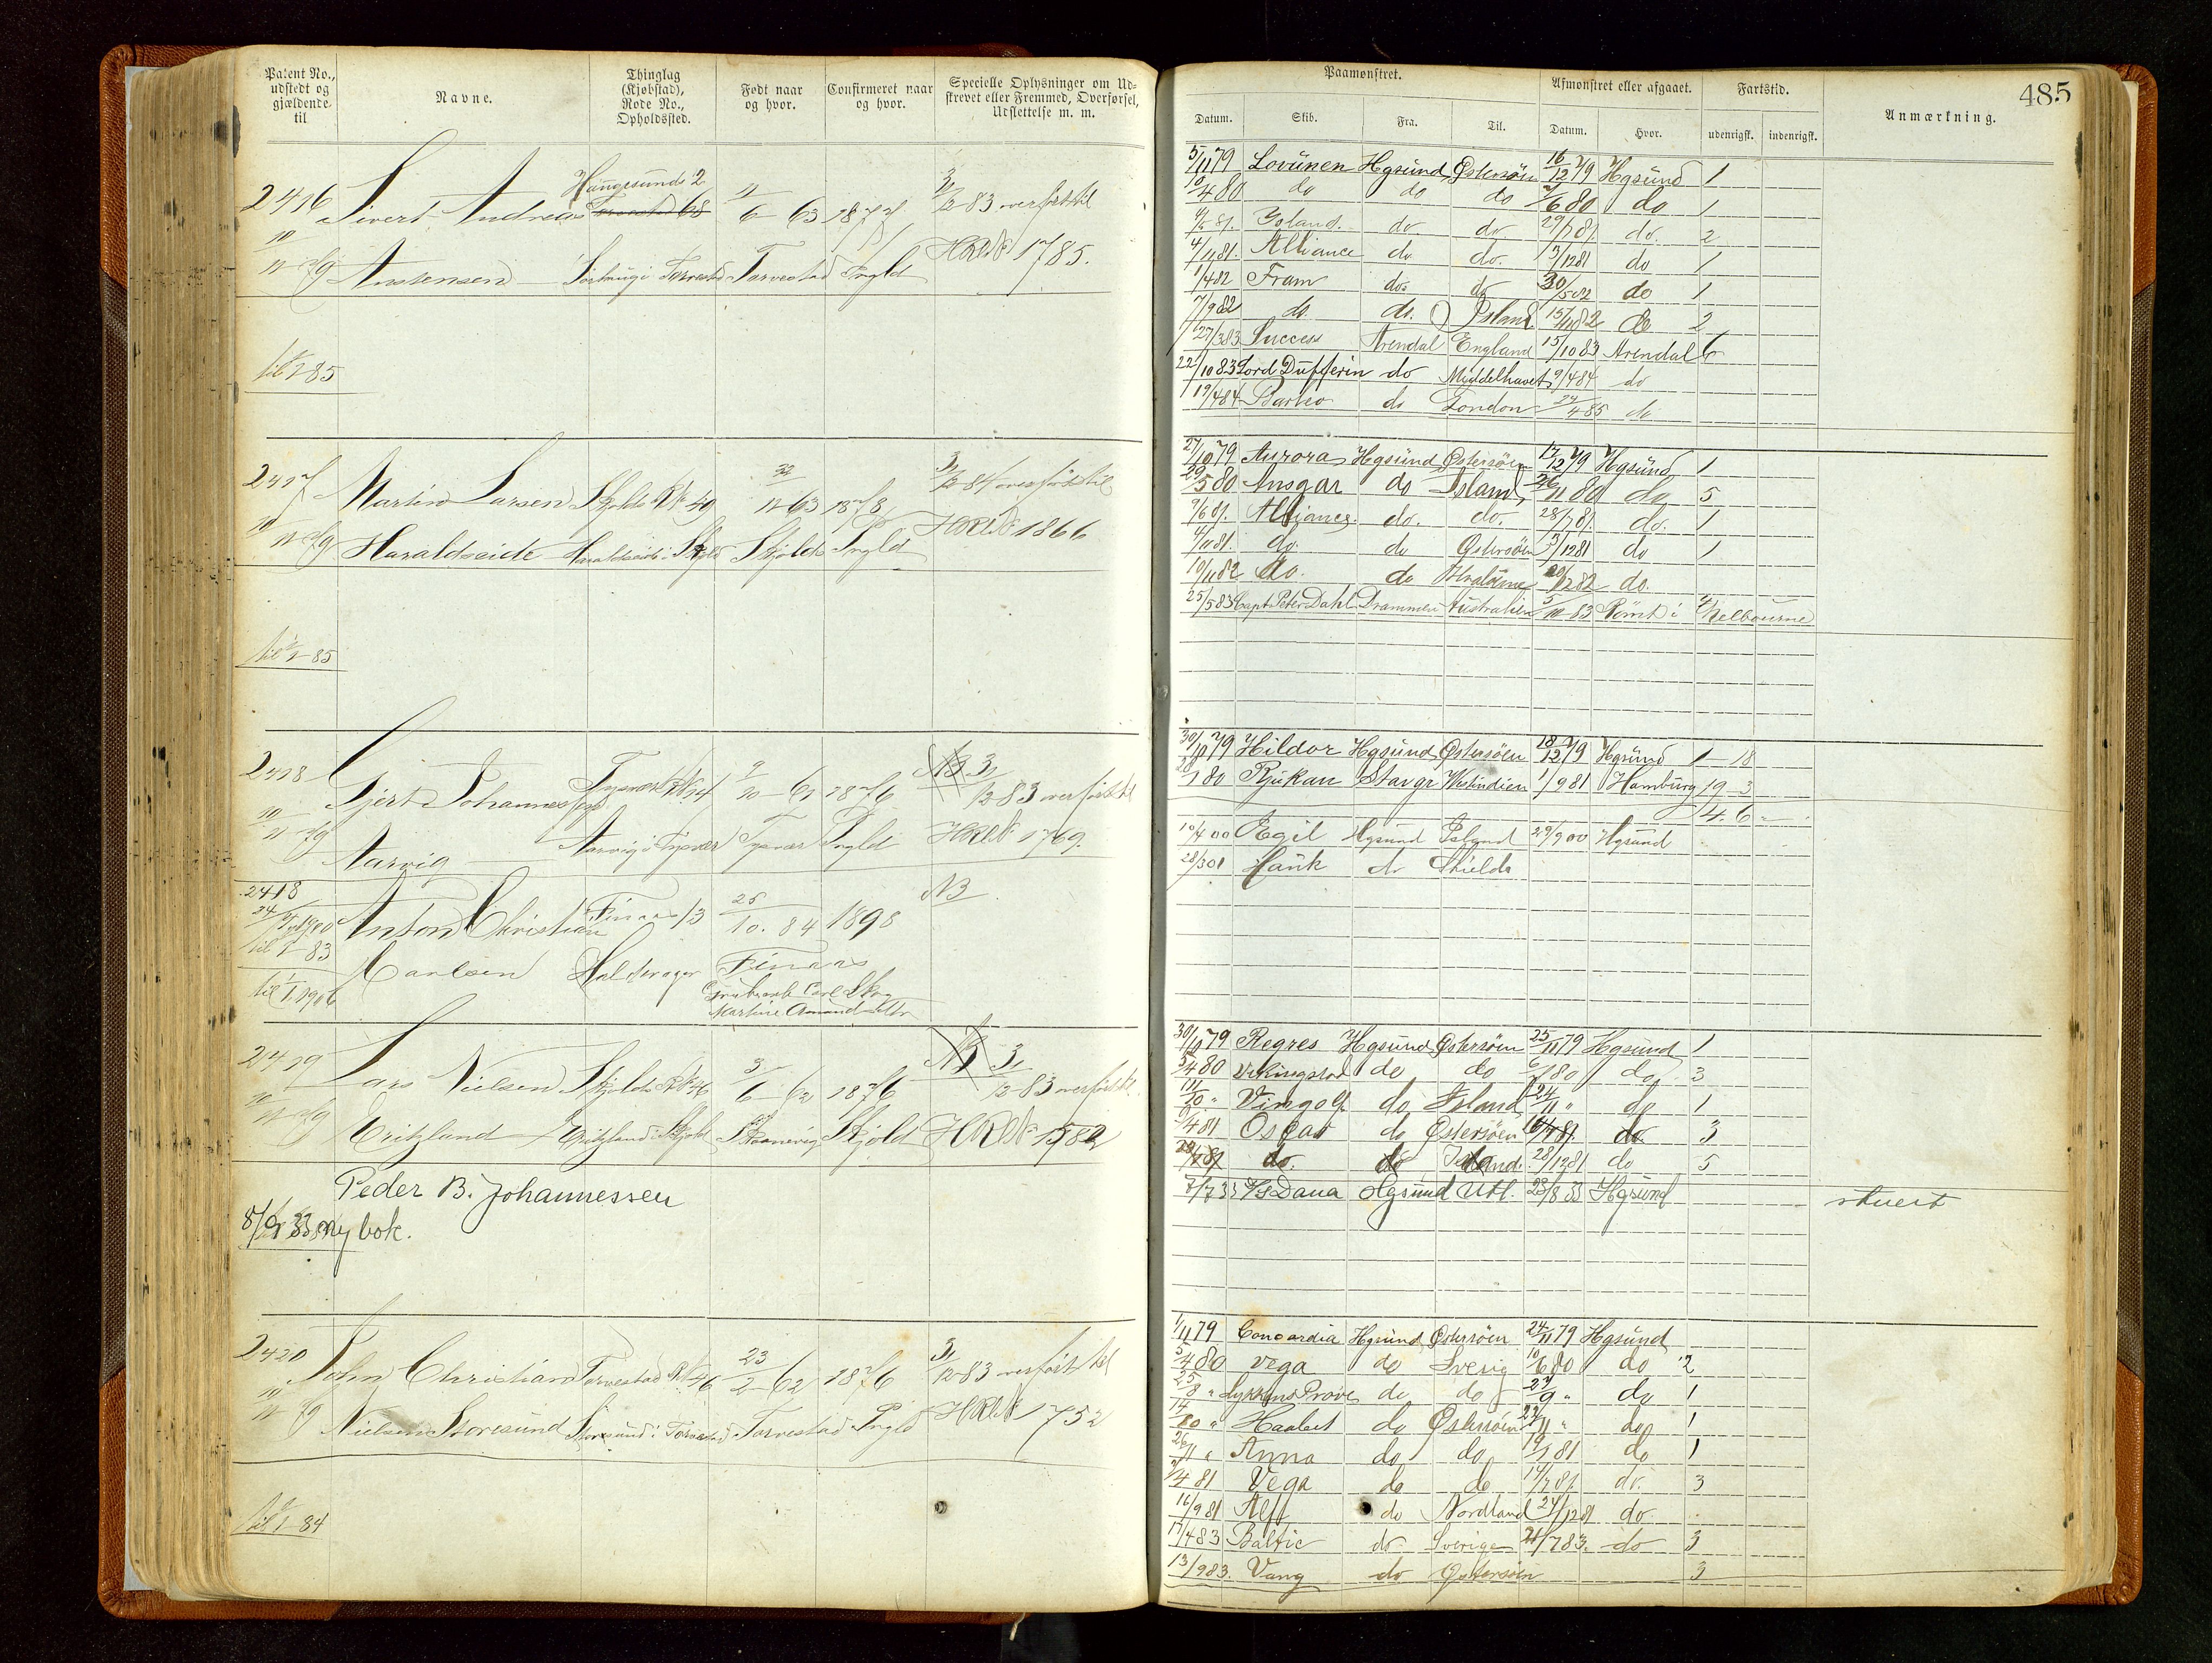 Patent No., udstedt og gjældende til
Navne.
Thinglag (Kjøbstad), Rode No., Opholdssted.
Født naar og hvor.
Confirmeret naar og hvor.
Specielle Oplysninger om Udskrevet eller Fremmed, Overførsel, Udslettelse m. m.
2416 Sivert Andreas Haugesunds 2 Torvestad 68 6-63 1877 3/12 83 overført til
Anstensen Torvestad Torvestad Ingld HRL No 1785.
til 1/1-85
2417 Martin Larsen Skjolds R No 49 11-63 1878 3/12 84 overført til
Haraldseide Haraldseide i Skjold Skjolds Ingld HRL No 1866
til 1/1-85
2418 Gjert Johannessen Tysvær R No 14 9/10-61 1876 NB 3/12 83 overført til
Aarvig Aarvig i Tysvær Tysvær Ingld HRL No 1769.
2418
Anton Christian Finaas 13 25/10. 84 1898 NB
til 1/1-83
Carlsen Halderager Finaas
til 1/1 1906
2419 Lars Nielsen Skjolds R No 46 3/6-62 1876 NB 3/12 83 overført til
Eritzland Eritzland i Skjold Skaanevig Skjold HRL No 1582
Peder B. Johannessen
8/9 33 Ny bok.
2420 John Christian Torvestad R No 46 23/2-62 1876 3/12-83 overført til
Nielsen Storesund Storesund i Torvestad Torvestad Ingld HRL No 1752
til 1/1-84
Paamønstret.
Afmønstret eller afgaaet.
Fartstid.
485
Datum. Skib. Fra. Til. Datum. Hvor. udenrigsk. indenrigsk. Anmærkning.
5/11 79 Lovünen Hgsünd Østersøen 16/12 79 Hgsünd 1
10/4 80 do do do 7/6 80 do 1
Island. do. do 29/7 81 do. 2
4/11 81. Alliance do do. 13/12 81 do 1
1/4 82 Fram do do 30/5 82 do 1
7/9 82 do. do. Island 15/11 82 do 2
27/3 83 Success Arendal England 15/10 83 Arendal 6
22/10 83 Lord Dufferin do Middelhavet 9/4 84 do
19/4 84 do London 24/4 85 do
27/10 79 Aurora Hgsünd Østersøen 17/12 79 Hgsünd 1
29/5 80 Ansgar do Island, 26/11 80 do 5
9/6 81. Alliance. do. do. 28/7 81. do. 1
4/11 81. do. do Østersøen 13/12 81 do 1
10/11 82 do. do 20/12 82 do.
25/5 83 Capt. Peter Dahl Drammen Australien 5/10 83 Rømt i Melbourne
30/10 79 Hildor Hgsünd Østersøen 18/12 79 Hgsünd 1-18
28/1 80 Rjukan Stavgr Westindien 1/9 81 Hamburg 19 3
10/4 00 Egil Hgsund Island 29/9 00 Hgsund
28/3 01 Hauk do Skields
30/10 79 Regres Hgsünd Østersøen 25/11 79 Hgsünd 1
5/4 80 Vikingstad do do 6/7 80 do 3
11/10 " Vingolf do Island 24/11 " do 1
/4 81 Oscar do Østersøen 16/7 81. do. 3
do. do Island. 28/12 81 do 5
7/7 33 D/S Dana Hgsund Utl. 23/8 33 Hgsund stuert
1/11 79 Concordia Hgsünd Østersøen 24/11 79 Hgsünd
5/4 80 Vega do Sverig 10/6 80 do 2
25/8 " Lykkens Prøve do do 23/9 " do 1
14/10 " Haabet do Østersøen 22/11 " do 1
26/11 " Anna do do 19/1 81 do 1
/4 81 Vega do do 14/7 81. do. 3
16/9 81 Alf do Nordland 24/12 81 do
17/4 83 Baltic do Sverige 21/7 83. do 3
13/9 83. Vang do Østersøen 3